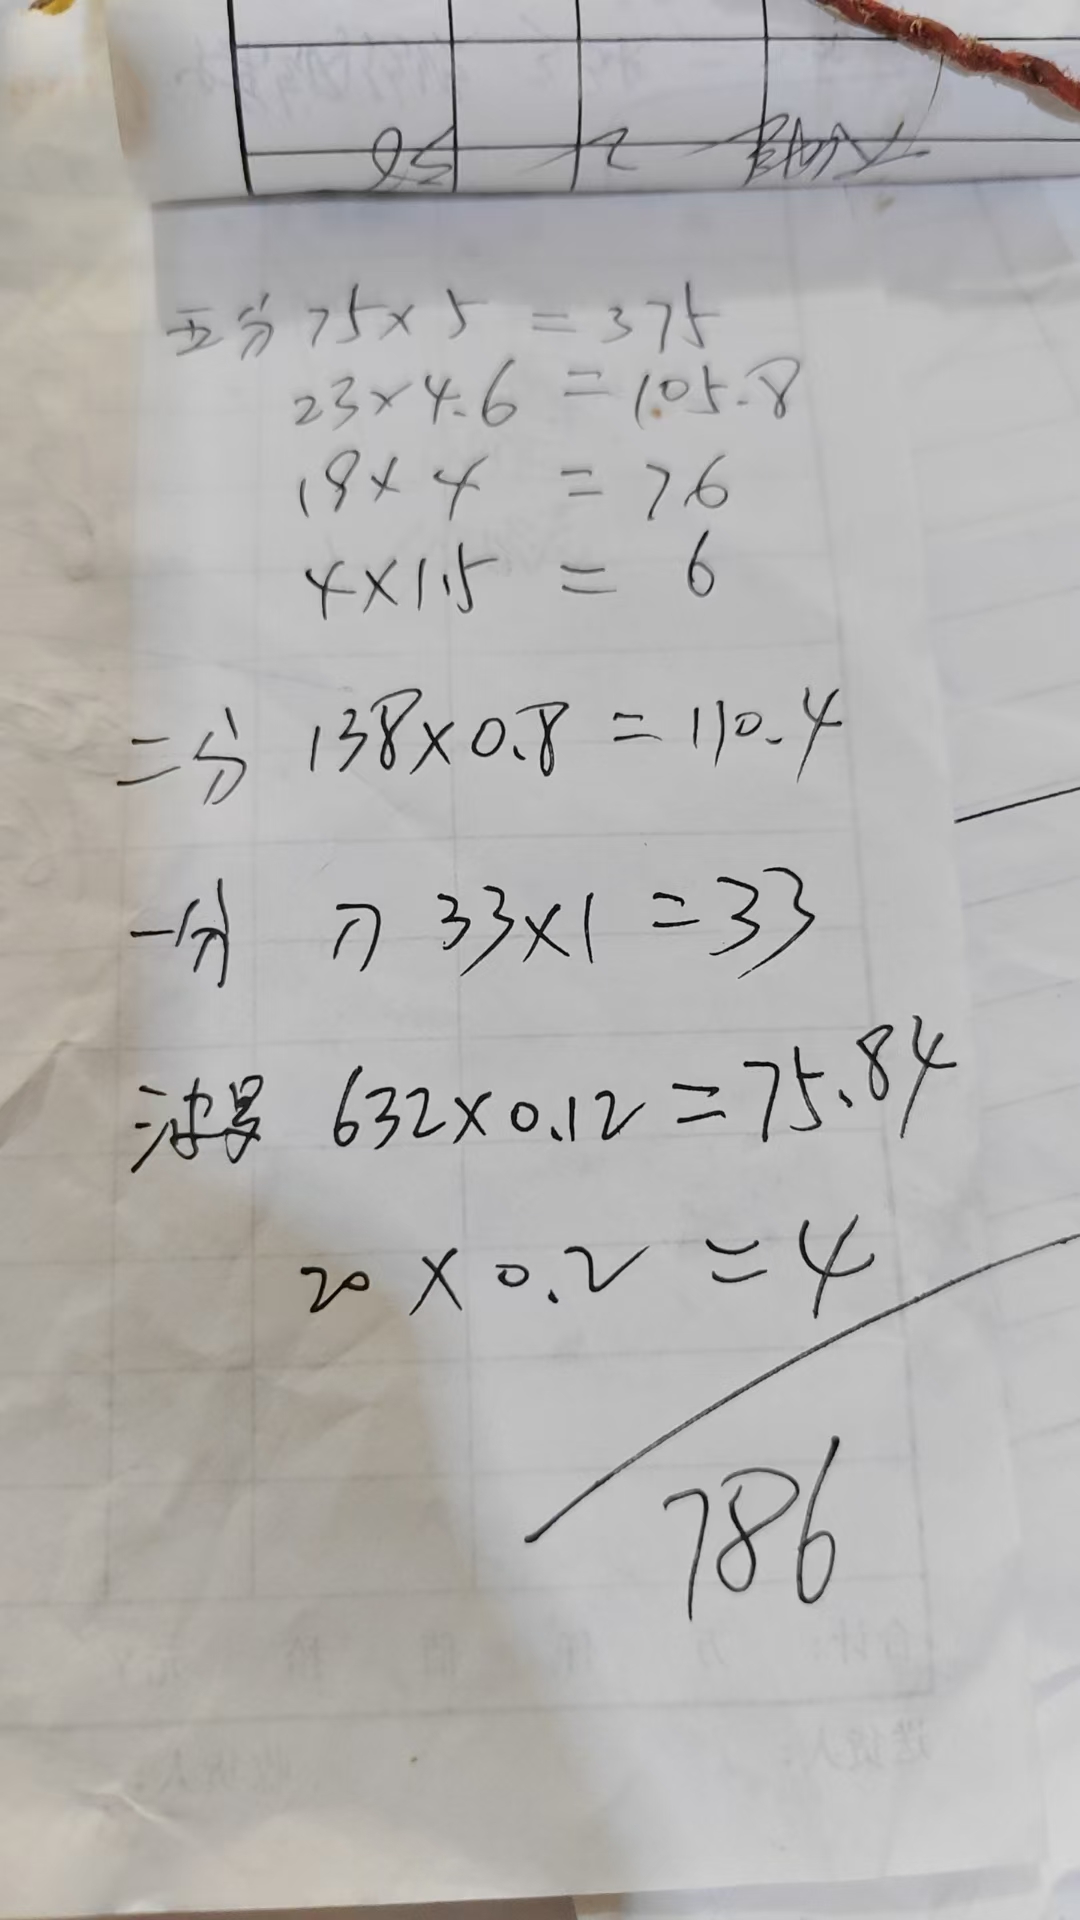 五分 75×5 = 375
23×4.6 = 105.8
19×4 = 76
4×1.5 = 6
二分 138×0.8 = 110.4
一分 刀 33×1 = 33
632×0.12 = 75.84
20×0.2 = 4
786